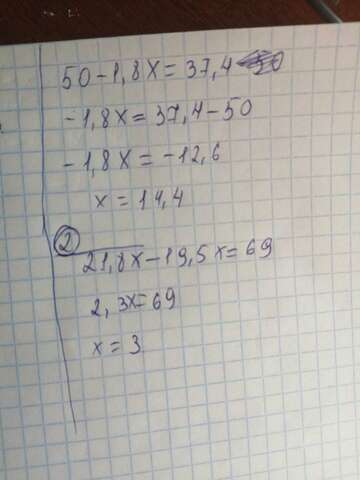 50-1,8x=37,4
-1,8x=37,4-50
-1,8x=-12,6
x=14,4
2
21,8x-19,5x=69
2,3x=69
x=3